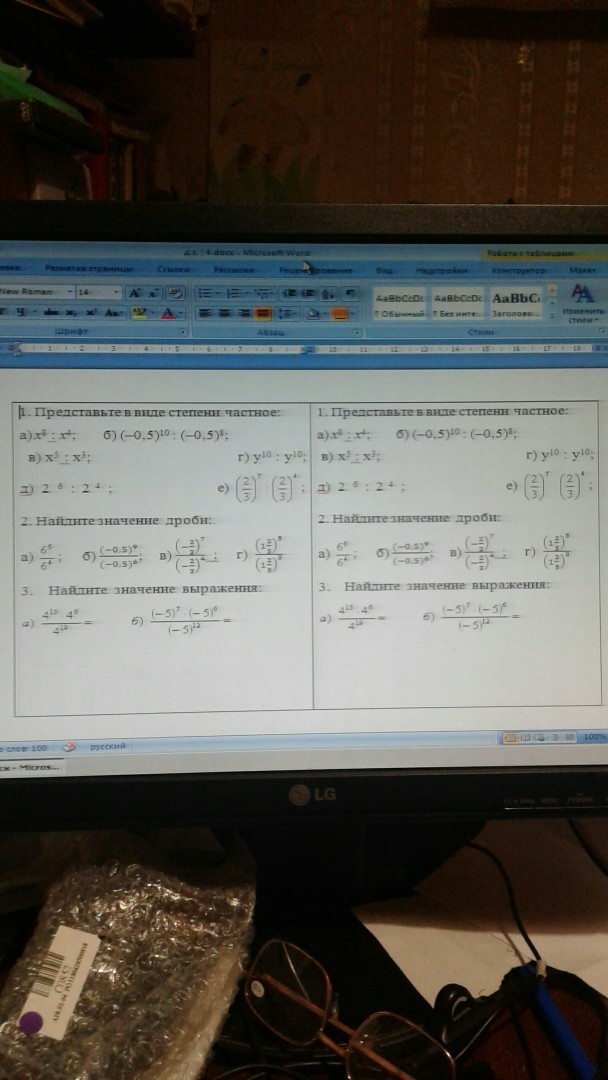 д.з. 14.docx - Microsoft Word Работа с таблицами
Разметка страницы Ссылки Рассылки Рецензирование Вид Надстройки Конструктор Макет
New Roman 14
AaBbCcDc AaBbCcDc AaBbC
¶ Обычный ¶ Без инте... Заголово... Изменить стили
Шрифт Абзац Стили
1. Представьте в виде степени частное:
а) x⁸ : x⁴; б) (−0,5)¹⁰ : (−0,5)⁸;
в) x⁵ : x³; г) y¹⁰ : y¹⁰;
д) 2 ⁶ : 2 ⁴ ; е) (2/3)⁷ (2/3)⁴ ;
2. Найдите значение дроби:
а) 6⁶/6⁴ ; б) (−0,5)⁹/(−0,5)⁶; в) (−2/3)⁷/(−2/3)⁴ ; г)
3. Найдите значение выражения:
а) 4¹⁵ 4⁶/4¹⁹ = б) (−5)⁷ (−5)⁶/(−5)¹² =
1. Представьте в виде степени частное:
а) x⁸ : x⁴; б) (−0,5)¹⁰ : (−0,5)⁸;
в) x⁵ : x³; г) y¹⁰ : y¹⁰;
д) 2 ⁶ : 2 ⁴ ; е) (2/3)⁷ (2/3)⁴ ;
2. Найдите значение дроби:
а) 6⁶/6⁴ ; б) (−0,5)⁹/(−0,5)⁶; в) (−2/3)⁷/(−2/3)⁴ ; г)
3. Найдите значение выражения:
а) 4¹⁵ 4⁶/4¹⁹ = б) (−5)⁷ (−5)⁶/(−5)¹² =
слов: 100 русский 100%
LG